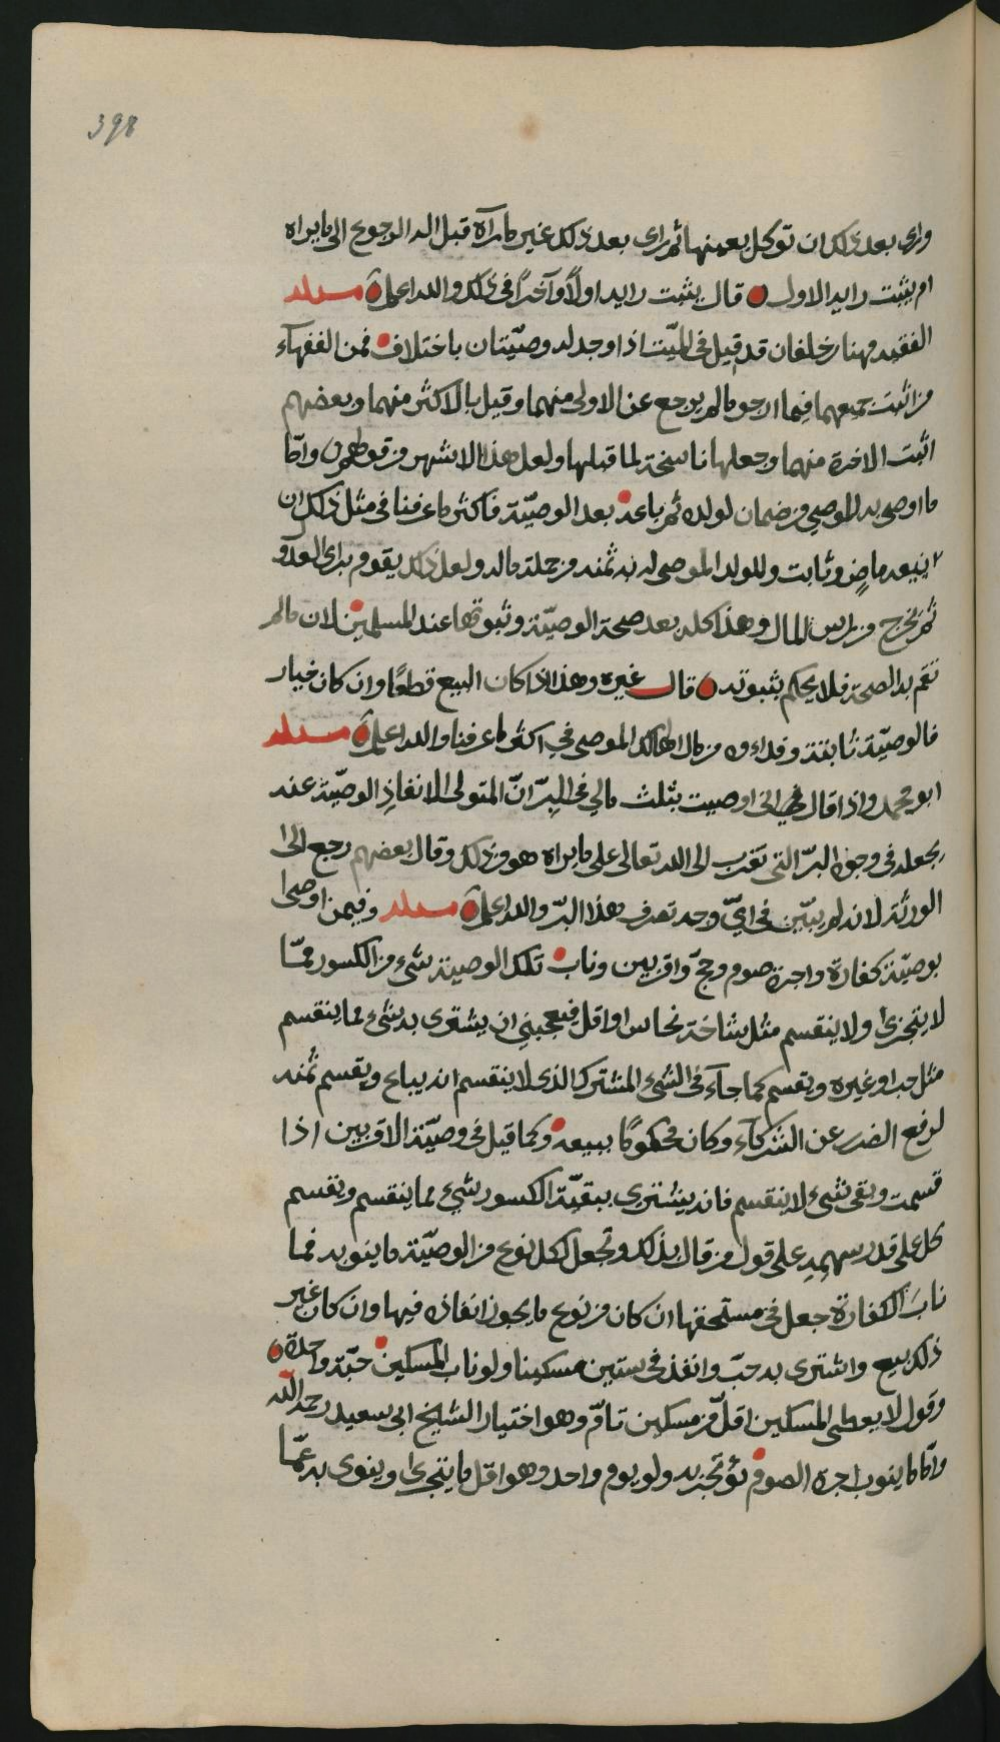 398
وراى بعد ذلك ان توكل بعينها ثم راى بعد ذلك غير ما رآه قبل اله الرجوع الى ما يراه
ام يثبت رايه الاول قال يثبت رايه اولاً وآخراً فى ذلك والله اعلم مسئلة
الفقيه مهنا بن خلفان قد قيل فى الميّت اذا وجد له وصيّتان باختلاف فمن الفقهآء
من اثبت جميعهما فيما ارجو ما لم يرجع عن الاولى منهما وقيل بالاكثر منهما وبعضهم
اثبت الاخرة منهما وجعلها ناسخة لما قبلها ولعل هذا الاشهر من قولهم وامّا
ما اوصى به الموصي من ضمان لولده ثم باعه بعد الوصيّة فاكثر ما عرفنا فى مثل ذلك ان
بيعه ماضٍ وثابت وللولد الموصى له به ثمنه من جملة ماله ولعل ذلك يقوم براى العدو
ثم يخرج من راس المال وهذا كله بعد صحة الوصيّة وثبوتها عند المسلمين لان ما لم
تقم به الصحة فلا يحكم بثبوته قال غيره وهذا اذا كان البيع قطعًا وان كان خيار
فالوصيّة ثابتة وفداءه من مال الهالك الموصي في اكثر ما عرفنا والله اعلم مسئلة
ابو محمد واذا قال انى اوصيت بثلث مالي فى البرّ انّ المتولى لانفاذِ الوصيّة عنه
يجعله فى وجوه البرّ التى تقرب الى الله تعالى على ما يراه هو من ذلك وقال بعضهم رجع الى
الورثة لانه لم يبيّن فى ايّ وجه تصرف هذا البرّ والله اعلم مسئلة وفيمن اوصى
بوصيّة كفارة واجرة صوم وحجّ واقربين وناب تلك الوصية شىء من الكسور ممّا
لا يتجزى ولا ينقسم مثل شاخة نحاس او اقل فيعجبني ان يشترى به شىء مما ينقسم
مثل حب او غيره ويقسم كما جآء فى الشىء المشترك الذى لا ينقسم انه يباع ويقسم ثمنه
لرفع الضرر عن الشركآء وكان محكومًا ببيعه وكما قيل فى وصيّة الاقربين اذا
قسمت وبقى شىء لا ينقسم فانه يشترى ببقيّة الكسور شىء مما ينقسم ويقسم
كل على قدر سهمه على قول من قال بذلك وتجعل لكل نوع من الوصيّة ما ينوبه فما
نابَ الكفارة جعل فى مستحقها ان كان من نوع ما يجوز انفاذه فيها وان كان غير
ذلك بيع واشترى به حبّ وانفذ فى ستين مسكينا ولو ناب المسكين حبّة واحدة
وقول لا يعطى المسكين اقلّ من مسكين تامّ وهو اختيار الشيخ ابى سعيد رحمه الله
وامّا ما ينوب اجرة الصوم يؤتجر به ولو يوم واحد وهو اقل ما يتجزى وينوى به عمّا